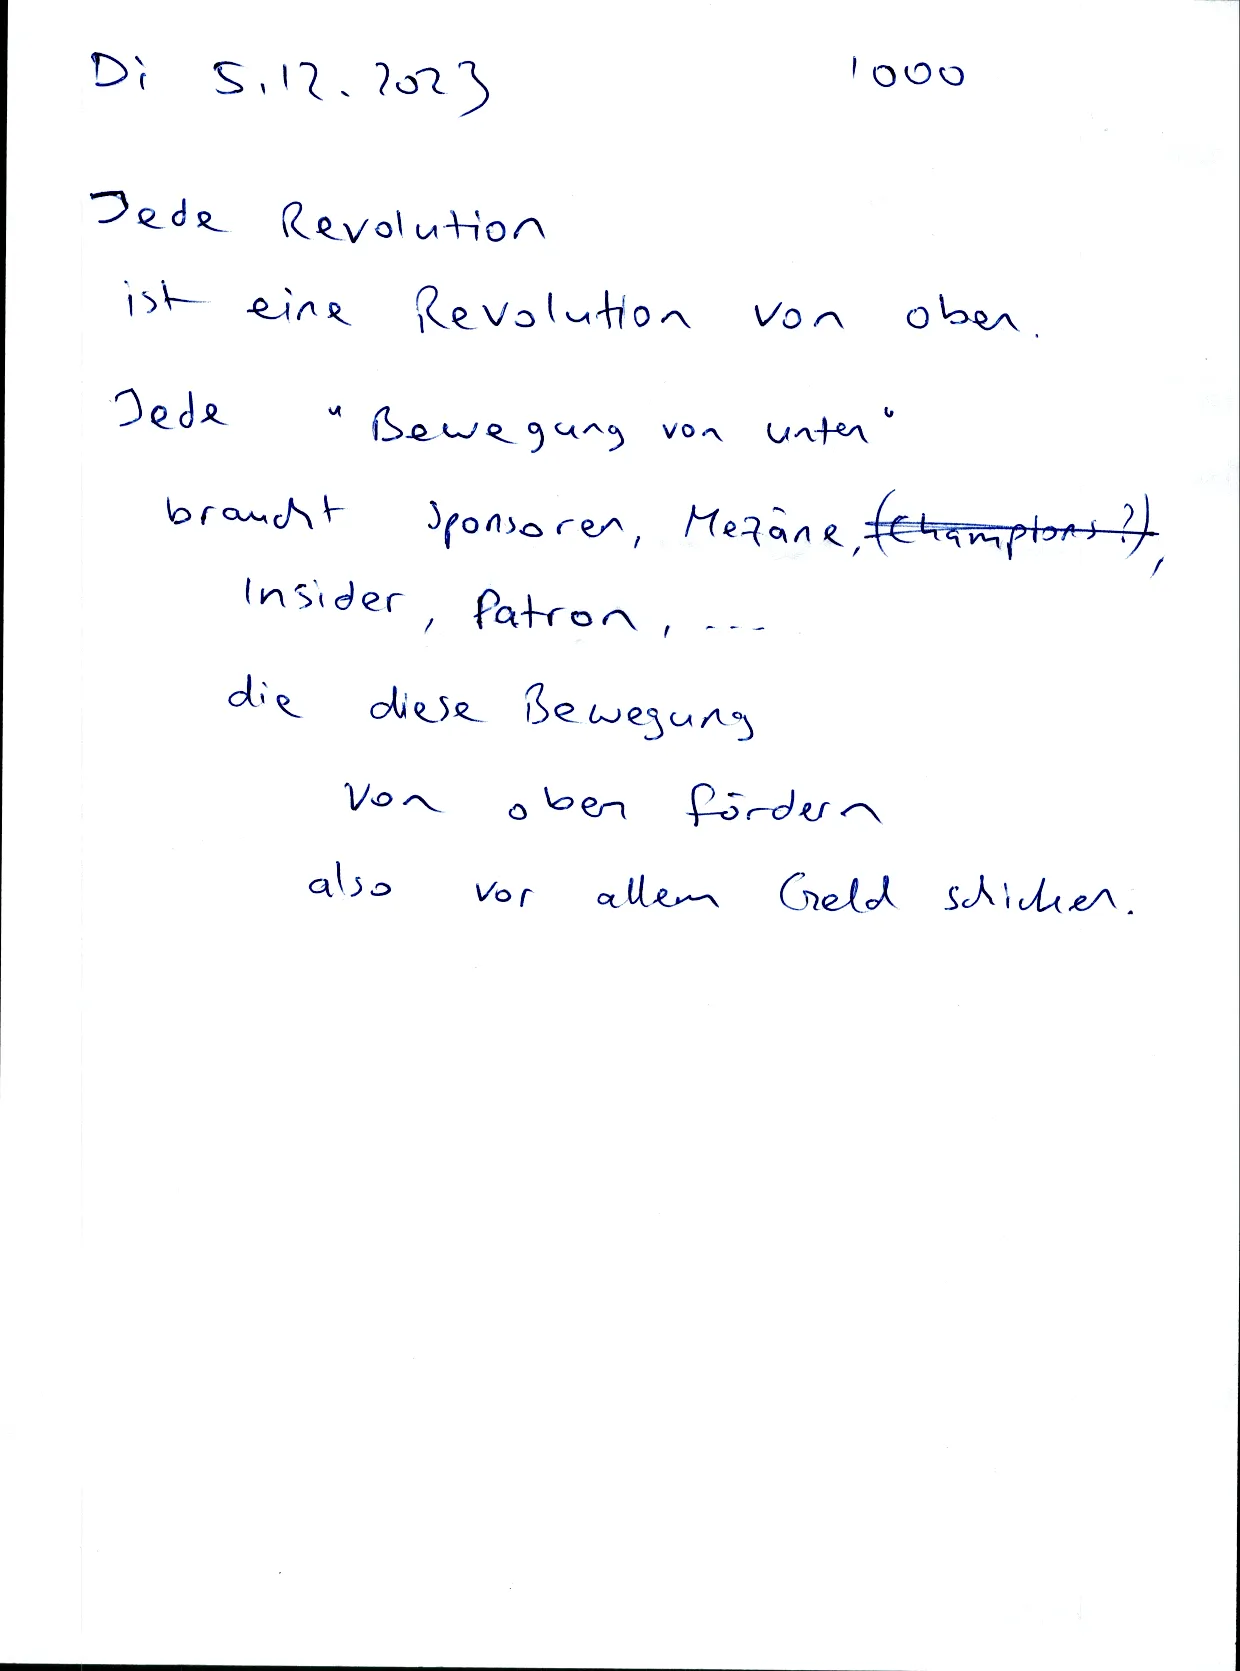 Di 5.12.2023 1000
Jede Revolution
ist eine Revolution von oben.
Jede "Bewegung von unten"
braucht Sponsoren, Mezäne, (Champions?),
Insider, Patron, ...
die diese Bewegung
von oben fördern
also vor allem Geld schicken.